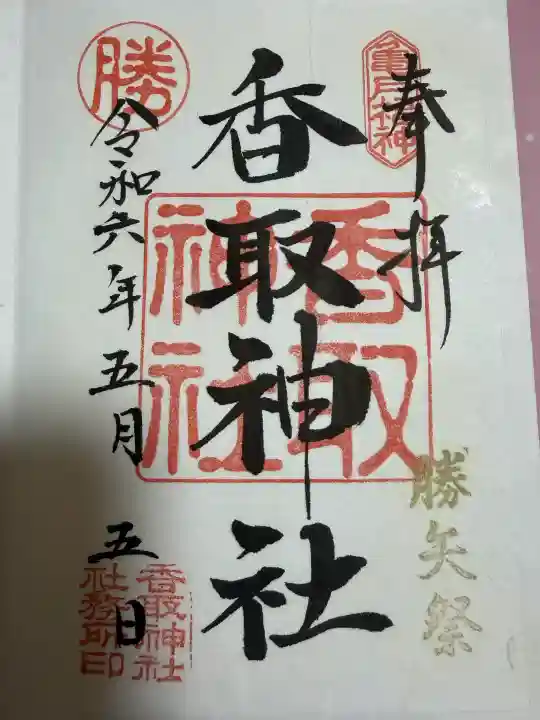 奉拝
亀戸雷神
勝矢祭
香取神社
香取
神社
勝
令和六年五月五日
香取神社
社務所印